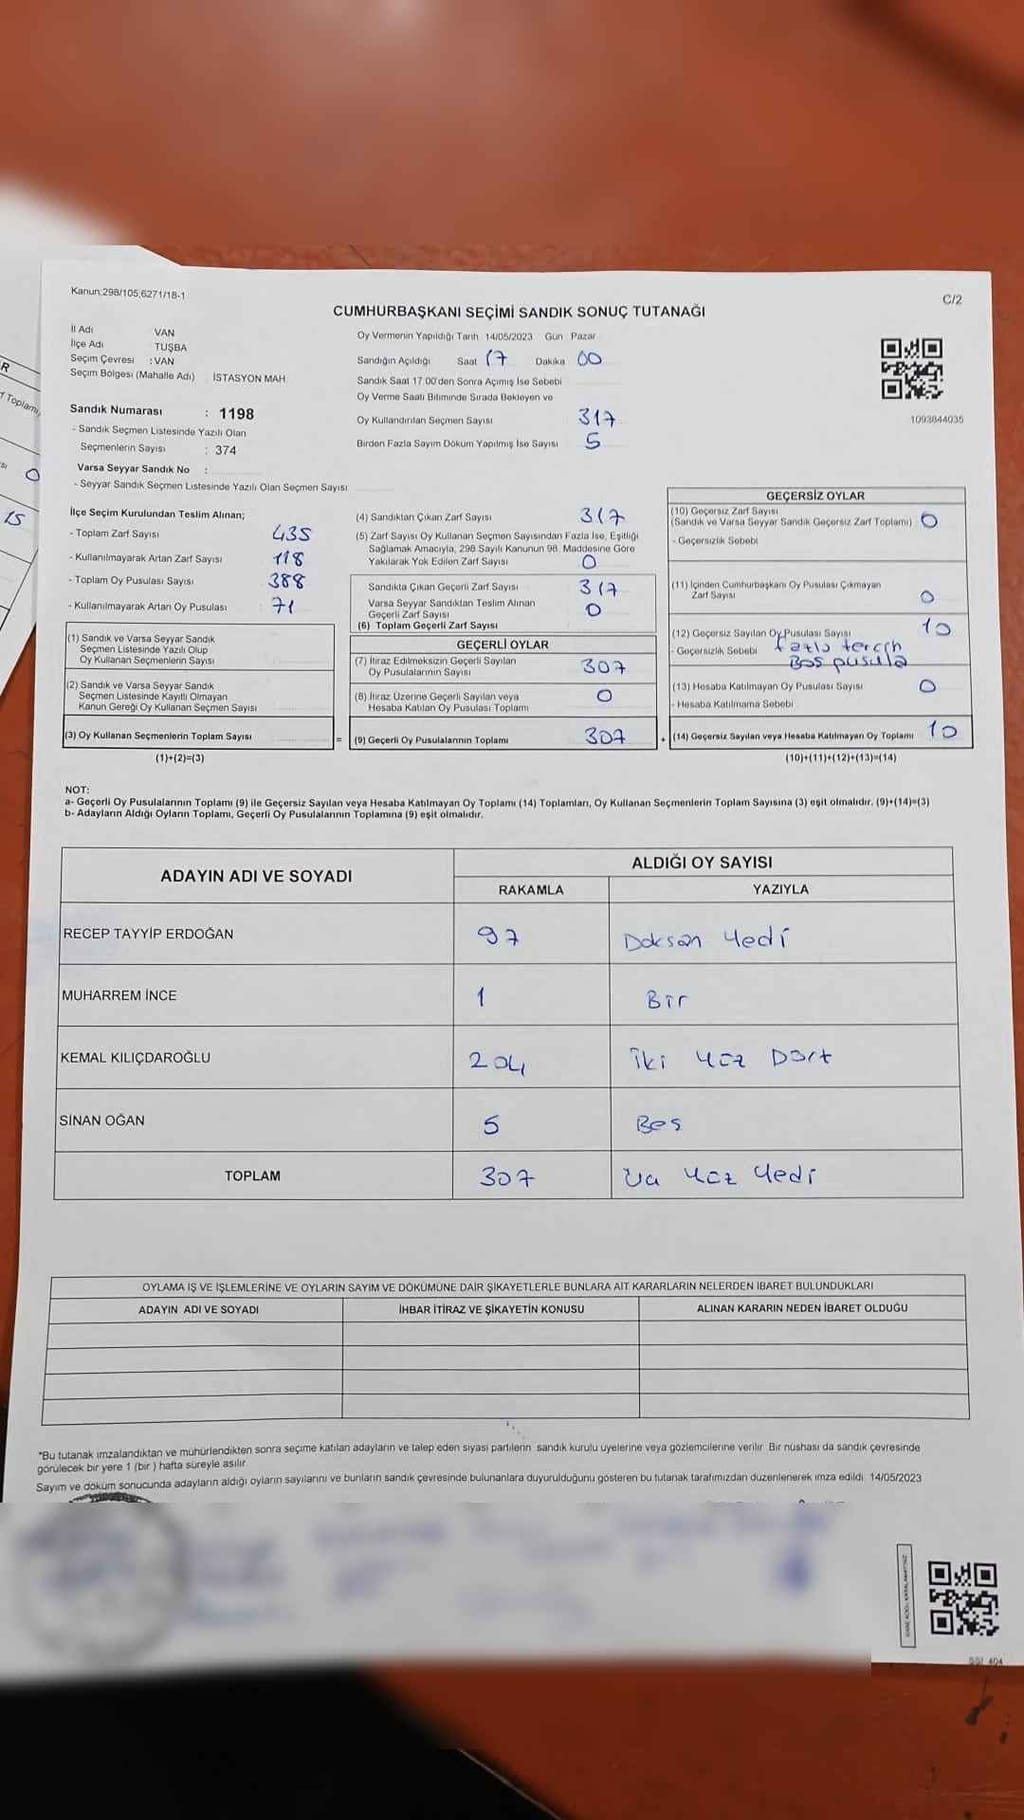 Kanun:298/105,6271/18-1
C/2
CUMHURBAŞKANI SEÇİMİ SANDIK SONUÇ TUTANAĞI
İl Adı VAN
İlçe Adı TUŞBA
Seçim Çevresi : VAN
Seçim Bölgesi (Mahalle Adı) İSTASYON MAH
Sandık Numarası : 1198
- Sandık Seçmen Listesinde Yazılı Olan
Seçmenlerin Sayısı : 374
Varsa Seyyar Sandık No :
- Seyyar Sandık Seçmen Listesinde Yazılı Olan Seçmen Sayısı
Oy Vermenin Yapıldığı Tarih 14/05/2023 Gün Pazar
Sandığın Açıldığı Saat 17 Dakika 00
Sandık Saat 17.00'den Sonra Açımış İse Sebebi
Oy Verme Saati Bitiminde Sırada Bekleyen ve
Oy Kullandırılan Seçmen Sayısı 317
Birden Fazla Sayım Döküm Yapılmış İse Sayısı 5
1093844035
İlçe Seçim Kurulundan Teslim Alınan;
- Toplam Zarf Sayısı 435
- Kullanılmayarak Artan Zarf Sayısı 118
- Toplam Oy Pusulası Sayısı 388
- Kullanılmayarak Artan Oy Pusulası 71
(1) Sandık ve Varsa Seyyar Sandık
Seçmen Listesinde Yazılı Olup
Oy Kullanan Seçmenlerin Sayısı
(2) Sandık ve Varsa Seyyar Sandık
Seçmen Listesinde Kayıtlı Olmayan
Kanun Gereği Oy Kullanan Seçmen Sayısı
(3) Oy Kullanan Seçmenlerin Toplam Sayısı
(1)+(2)=(3)
=
(4) Sandıktan Çıkan Zarf Sayısı 317
(5) Zarf Sayısı Oy Kullanan Seçmen Sayısından Fazla İse, Eşitliği
Sağlamak Amacıyla, 298 Sayılı Kanunun 98. Maddesine Göre
Yakılarak Yok Edilen Zarf Sayısı 0
Sandıkta Çıkan Geçerli Zarf Sayısı 317
Varsa Seyyar Sandıktan Teslim Alınan
Geçerli Zarf Sayısı 0
(6) Toplam Geçerli Zarf Sayısı
GEÇERLİ OYLAR
(7) İtiraz Edilmeksizin Geçerli Sayılan
Oy Pusulalarının Sayısı 307
(8) İtiraz Üzerine Geçerli Sayılan veya
Hesaba Katılan Oy Pusulası Toplamı 0
(9) Geçerli Oy Pusulalarının Toplamı 307
+
GEÇERSİZ OYLAR
(10) Geçersiz Zarf Sayısı
(Sandık ve Varsa Seyyar Sandık Geçersiz Zarf Toplamı) 0
- Geçersizlik Sebebi
(11) İçinden Cumhurbaşkanı Oy Pusulası Çıkmayan
Zarf Sayısı 0
(12) Geçersiz Sayılan Oy Pusulası Sayısı 10
- Geçersizlik Sebebi fazla tercih
Boş pusula
(13) Hesaba Katılmayan Oy Pusulası Sayısı 0
- Hesaba Katılmama Sebebi
(14) Geçersiz Sayılan veya Hesaba Katılmayan Oy Toplamı 10
(10)+(11)+(12)+(13)=(14)
NOT:
a- Geçerli Oy Pusulalarının Toplamı (9) ile Geçersiz Sayılan veya Hesaba Katılmayan Oy Toplamı (14) Toplamları, Oy Kullanan Seçmenlerin Toplam Sayısına (3) eşit olmalıdır. (9)+(14)=(3)
b- Adayların Aldığı Oyların Toplamı, Geçerli Oy Pusulalarının Toplamına (9) eşit olmalıdır.
ADAYIN ADI VE SOYADI
ALDIĞI OY SAYISI
RAKAMLA YAZIYLA
RECEP TAYYİP ERDOĞAN 97 Doksan Yedi
MUHARREM İNCE 1 Bir
KEMAL KILIÇDAROĞLU 204 İki Yüz Dört
SİNAN OĞAN 5 Beş
TOPLAM 307 Üç Yüz Yedi
OYLAMA İŞ VE İŞLEMLERİNE VE OYLARIN SAYIM VE DÖKÜMÜNE DAİR ŞİKAYETLERLE BUNLARA AİT KARARLARIN NELERDEN İBARET BULUNDUKLARI
ADAYIN ADI VE SOYADI İHBAR İTİRAZ VE ŞİKAYETİN KONUSU ALINAN KARARIN NEDEN İBARET OLDUĞU
*Bu tutanak imzalandıktan ve mühürlendikten sonra seçime katılan adayların ve talep eden siyasi partilerin sandık kurulu üyelerine veya gözlemcilerine verilir. Bir nüshası da sandık çevresinde
görülecek bir yere 1 (bir ) hafta süreyle asılır.
Sayım ve döküm sonucunda adayların aldığı oyların sayılarını ve bunların sandık çevresinde bulunanlara duyurulduğunu gösteren bu tutanak tarafımızdan düzenlenerek imza edildi. 14/05/2023
R
Toplamı
0
15